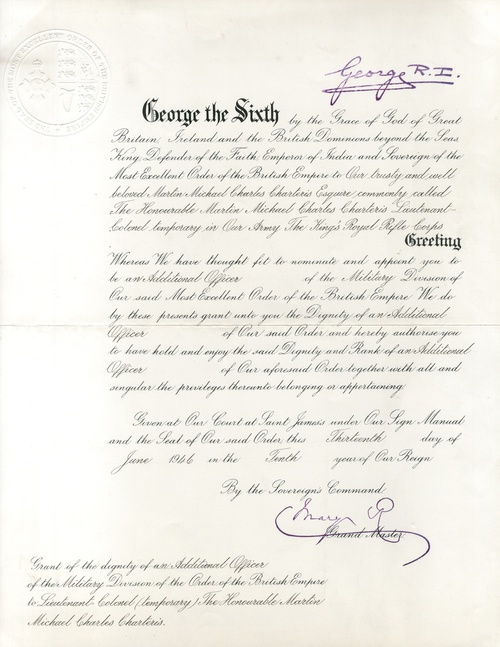 George R.I.
George the Sixth by the Grace of God of Great
Britain, Ireland and the British Dominions beyond the Seas,
King, Defender of the Faith, Emperor of India and Sovereign of the
Most Excellent Order of the British Empire to Our trusty and well
beloved Martin Michael Charles Charteris Esquire commonly called
The Honourable Martin Michael Charles Charteris Lieutenant-
Colonel temporary in Our Army The King's Royal Rifle Corps
Greeting
Whereas We have thought fit to nominate and appoint you to
be an Additional Officer of the Military Division of
Our said Most Excellent Order of the British Empire We do
by these presents grant unto you the Dignity of an Additional
Officer of Our said Order and hereby authorise you
to have hold and enjoy the said Dignity and Rank of an Additional
Officer of Our aforesaid Order together with all and
singular the privileges thereunto belonging or appertaining
Given at Our Court at Saint James's under Our Sign Manual
and the Seal of Our said Order this Thirteenth day of
June 1946 in the Tenth year of Our Reign
By the Sovereign's Command
Mary R
Grand Master
Grant of the dignity of an Additional Officer
of the Military Division of the Order of the British Empire
to Lieutenant-Colonel (temporary) The Honourable Martin
Michael Charles Charteris.